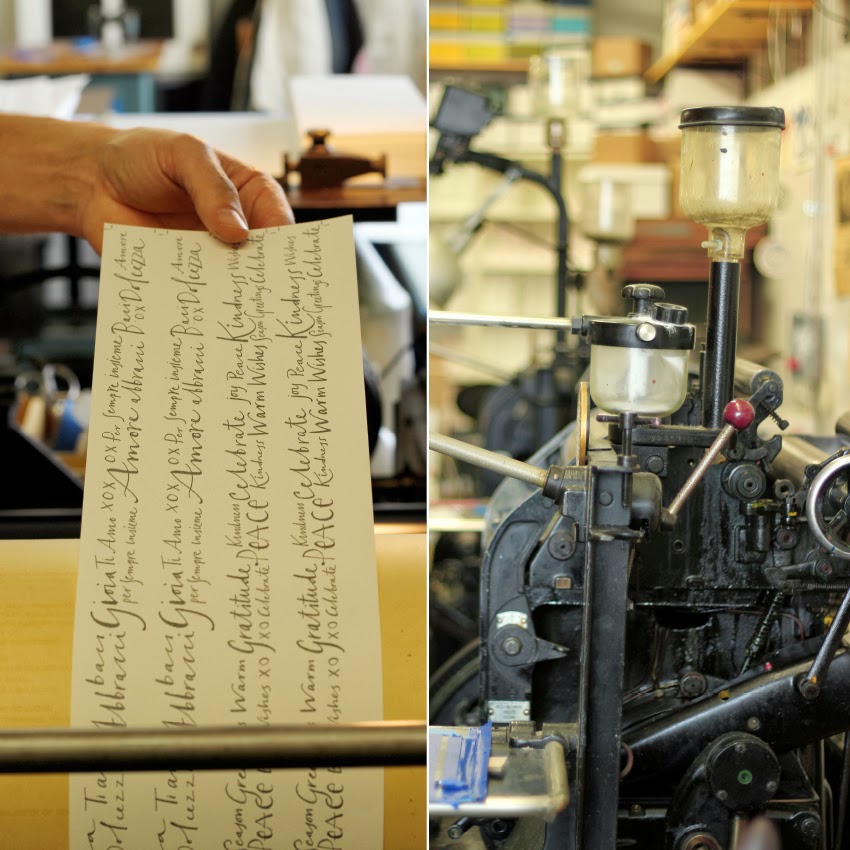 baci Gioia Ti Amo XOX Per sempre insieme Baci Amore
Abbracci per sempre insieme Amore abbracci OX Dolcezza
baci Gioia Ti Amo XOX Per sempre insieme Baci Amore
Abbracci per sempre insieme Amore abbracci OX Dolcezza
Season Warm Gratitude Kindness Celebrate Joy Peace Kindness Wishes
PEACE Wishes XO XO Celebrate PEACE Kindness Warm Wishes Season Greetings Celebrate
Season Warm Gratitude Kindness Celebrate Joy Peace Kindness Wishes
PEACE Wishes XO XO Celebrate PEACE Kindness Warm Wishes Season Greetings Celebrate